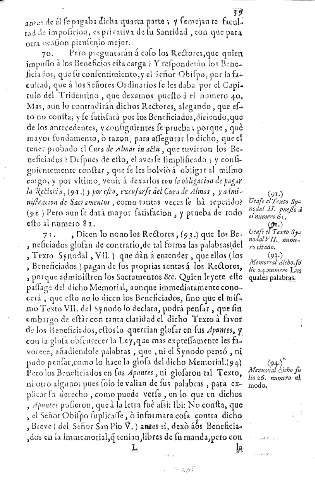 39
antes de él se pagaba dicha quarta parte; y semejante facul-
tad de imposicion, es privativa de su Santidad, con que para
otra ocasion piensenlo mejor.
70. Pero preguntarán á caso los Rectores, que quien
impuso á los Beneficios esta carga? Y responderán los Bene-
ficiados, que su consentimiento, y el Señor Obispo, por la fa-
cultad, que á los Señores Ordinarios se les daba por el Capi-
tulo del Tridentino, que dexamos puesto á el numero 40,
Mas, aun lo contradirán dichos Rectores, alegando, que es-
to no consta; y se satisfará por los Beneficiados, diciendo, que
de los antecedentes, y consiguientes se prueba; porque, què
mayor fundamento, ò razon, para assegurar lo dicho, que el
tener probado el Cura de Almas in actu, que tuvieron los Be-
neficiados? Despues de esto, el averse simplificado; y consi-
guientemente constar, que se les bolvió á obligar al mismo
cargo, y por vltimo, venir á dexarlos con la obligacion de pagar
la Rectoria, (91.) por esto, escusarse del Cura de Almas, y Admi-
nistracion de Sacramentos, como tantas veces se ha repetido
(92.) Pero aun se dará mayor satisfacion, y prueba de todo
esto al numero 82.
(91.)
Vease el Texto Sy-
nodal II. puesto á
el numero 61.
(92.)
Vease el Texto Sy-
nodal VII. nume-
ro citado.
71. Dicen lo nono los Rectores, (93.) que los Be-
neficiados glosan de contrario, de tal forma las palabras (del
Texto Synodal, VII.) que dán á entender, que ellos (los
Beneficiados) pagan de sus propias rentas á los Rectores,
porque administren los Sacramentos &c. Quien leyere este
passage del dicho Memorial, aunque immediatamente cono-
cerá, que esto no lo dicen los Beneficiados, sino que el mis-
mo Texto VII. del Synodo lo declara, podrá pensar, que sin
embargo de estár con tanta claridad el dicho Texto á favor
de los Beneficiados, estos la querrian glosar en sus Apuntes, y
con la glosa obscurecer la Ley, que mas expressamente les fa-
vorece, añadiendole palabras, que, ni el Synodo pensó, ni
pudo pensar, como lo hace la glosa del dicho Memorial. (94)
Pero los Beneficiados en sus Apuntes, ni glosaron tal Texto,
ni otro alguno; pues solo se valian de sus palabras, para ex-
plicar su derecho, como puede verse, en lo que en dichos
Apuntes pusieron, que á la letra fuè assi: Ibi: No consta, que
el Señor Obispo suplicasse, ò informara cosa contra dicho
Breve (del Señor San Pio V.) antes si, dexó á los Beneficia-
dos en la immemorial, q̃ tenian, libres de su manda, pero con
(93.)
Memorial dicho fo-
lio 24. numero Los
quales palabras.
(94.)
Memorial dicho fo-
lio 26. numero el
modo.
L
la